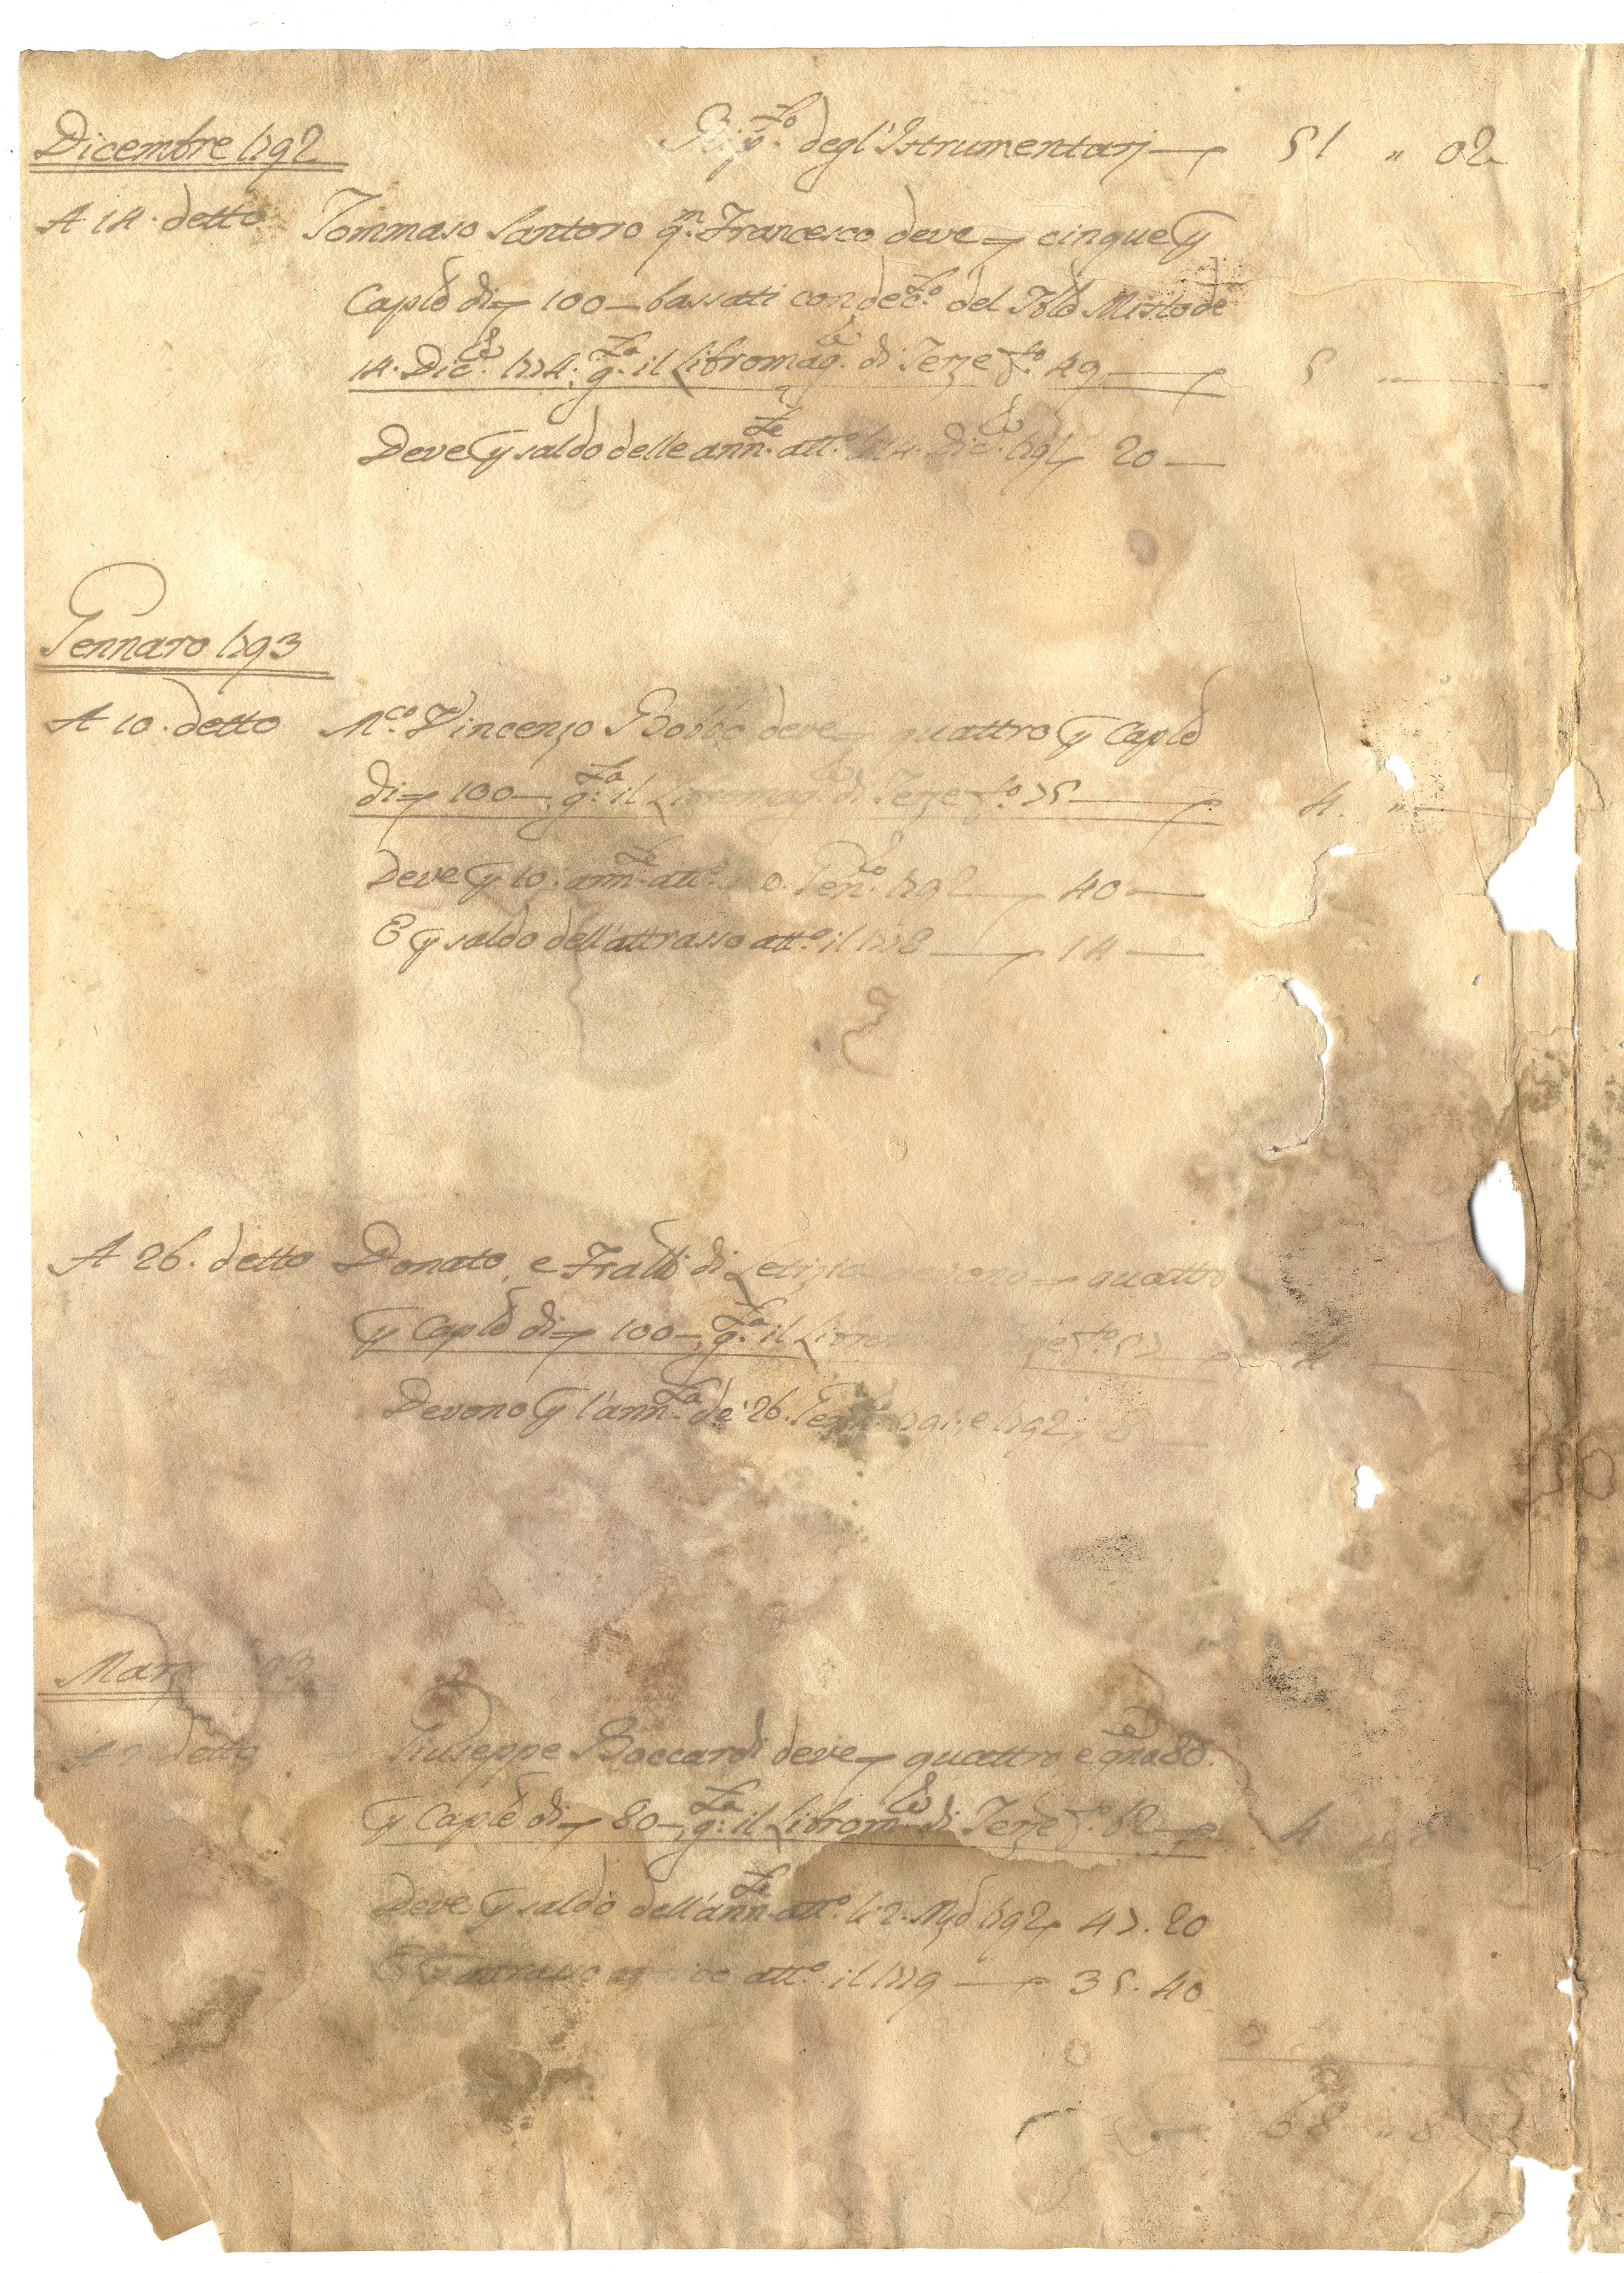 Dicembre 1792 Rip.to degl'Istrumentarj 51 " 02
A 14. detto Tommaso Santoro q.m Francesco deve cinque p
Caple di 100 - bassati con dec.to del Tble Misto de
14. Dic.e 1774. q.ta il Libromag.e di Terze f.o 49 5
Deve p saldo delle ann.te att.o li 14. Dic.e 1791 20
Gennaro 1793
A 10. detto M.co Vincenzo Bobbo deve quattro p Caple
di 100 - q.ta il Libromag.e di Terze f.o 75 4. "
Deve p 10. ann.te att.o Gen.o 1792 40
E p saldo dell'attrasso att.o il 1778 14
A 26. detto Donato, e Fralli di Letizia quattro
p Caple di 100 - q.ta il f.o 57 4
Devono p l'ann.ta de' 26. e 1792
A detto Giuseppe Boccardi deve quattro e gna 80.
p Caple di 80 - q.ta il Librom.e di Terze f.o 62 4
Deve p saldo dell'ann.te att.o li 2. Mzo 1792 47. 20
att.o il 1779 35. 40
68 " 8